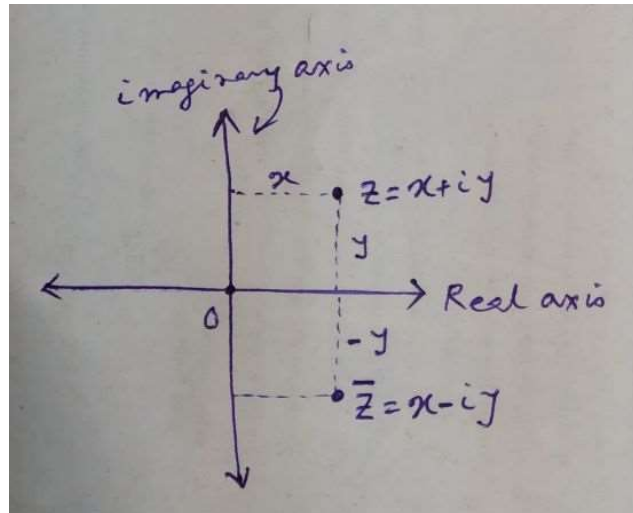 imaginary axis
x
z = x+iy
y
Real axis
0
-y
z̅ = x-iy